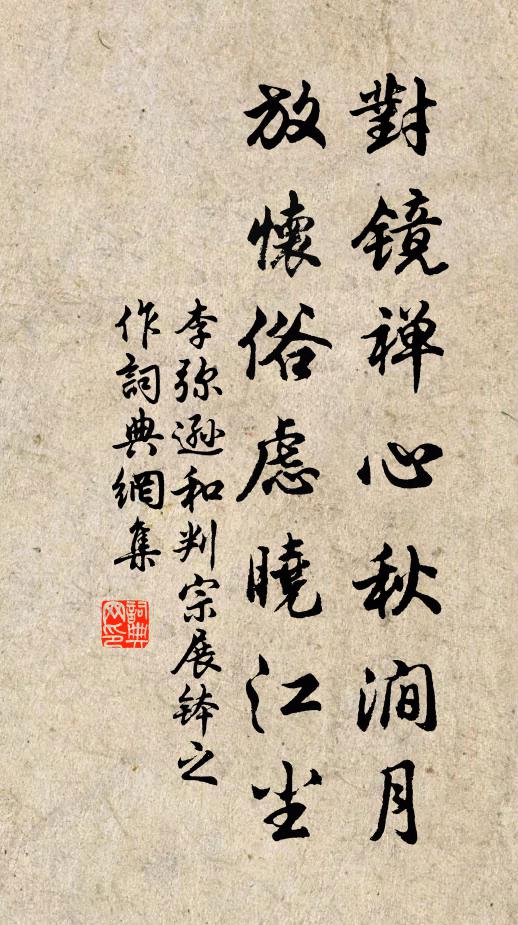 對鏡禅心秋澗月
放懷俗慮曉江尘
李弥遜和判宗展鉢之
作詞典網集
詞典網印